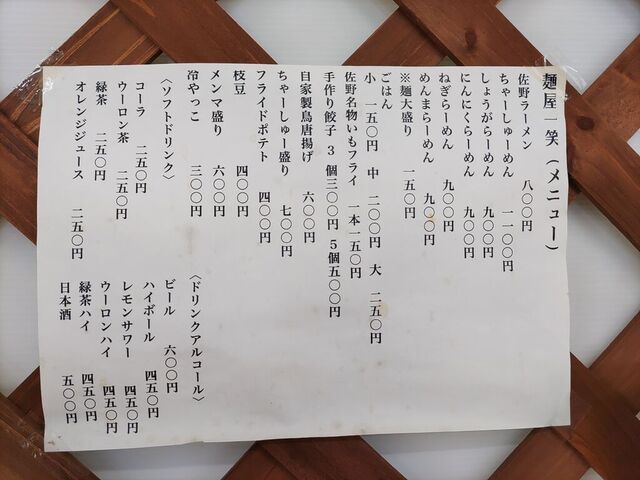 麺屋一笑（メニュー）
佐野ラーメン 八〇〇円
ちゃーしゅーめん 一一〇〇円
しょうがらーめん 九〇〇円
にんにくらーめん 九〇〇円
ねぎらーめん 九〇〇円
めんまらーめん 九〇〇円
※麺大盛り 一五〇円
ごはん
小 一五〇円 中 二〇〇円 大 二五〇円
佐野名物いもフライ 一本一五〇円
手作り餃子 3個三〇〇円 5個五〇〇円
自家製鳥唐揚げ 六〇〇円
ちゃーしゅー盛り 七〇〇円
フライドポテト 四〇〇円
枝豆 四〇〇円
メンマ盛り 六〇〇円
冷やっこ 三〇〇円
〈ソフトドリンク〉
コーラ 二五〇円
ウーロン茶 二五〇円
緑茶 二五〇円
オレンジジュース 二五〇円
〈ドリンクアルコール〉
ビール 六〇〇円
ハイボール 四五〇円
レモンサワー 四五〇円
ウーロンハイ 四五〇円
緑茶ハイ 四五〇円
日本酒 五〇〇円